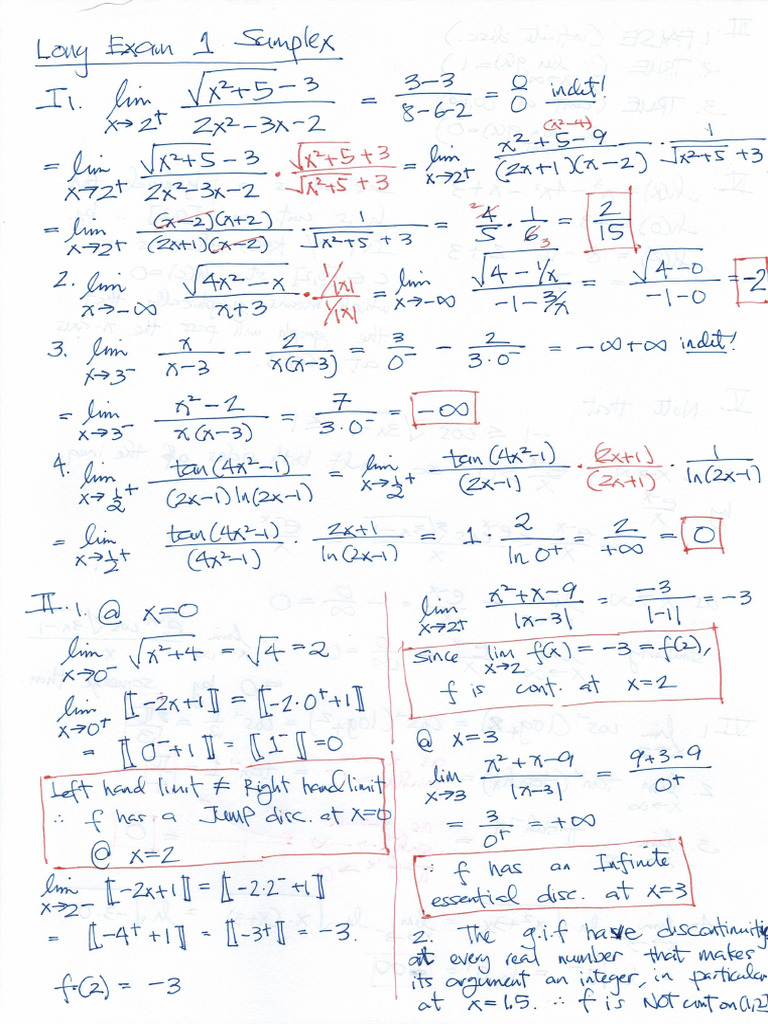 Long Exam 1 Samplex
I 1. lim x→2⁺ (√(x²+5) − 3)/(2x²−3x−2) = (3−3)/(8−6−2) = 0/0 indet!
= lim x→2⁺ (√(x²+5) − 3)/(2x²−3x−2) · (√(x²+5) + 3)/(√(x²+5) + 3) = lim x→2⁺ (x²+5−9)/((2x+1)(x−2)) (x²−4) · 1/(√(x²+5) + 3)
= lim x→2⁺ ((x−2)(x+2))/((2x+1)(x−2)) · 1/(√(x²+5) + 3) = ²4/5 · 1/6₃ = 2/15
2. lim x→−∞ √(4x²−x)/(x+3) · (1/|x|)/(1/|x|) = lim x→−∞ √(4−1/x)/(−1−3/x) = √(4−0)/(−1−0) = −2
3. lim x→3⁻ x/(x−3) − 2/(x(x−3)) = 3/0⁻ − 2/(3·0⁻) = −∞+∞ indet!
= lim x→3⁻ (x²−2)/(x(x−3)) = 7/(3·0⁻) = −∞
4. lim x→½⁺ tan(4x²−1)/((2x−1)ln(2x−1)) = lim x→½⁺ tan(4x²−1)/(2x−1) · (2x+1)/(2x+1) · 1/ln(2x−1)
= lim x→½⁺ tan(4x²−1)/(4x²−1) · (2x+1)/ln(2x−1) = 1 · 2/ln 0⁺ = 2/+∞ = 0
II. 1. @ x=0
lim x→0⁻ √(x²+4) = √4 = 2
lim x→0⁺ ⟦−2x+1⟧ = ⟦−2·0⁺+1⟧
= ⟦0⁻+1⟧ = ⟦1⁻⟧ = 0
Left hand limit ≠ Right hand limit
∴ f has a Jump disc. at x=0
@ x=2
lim x→2⁻ ⟦−2x+1⟧ = ⟦−2·2⁻+1⟧
= ⟦−4⁺+1⟧ = ⟦−3⁺⟧ = −3.
f(2) = −3
lim x→2⁺ (x²+x−9)/|x−3| = −3/|−1| = −3
Since lim x→2 f(x) = −3 = f(2),
f is cont. at x=2
@ x=3
lim x→3 (x²+x−9)/|x−3| = (9+3−9)/0⁺
= 3/0⁺ = +∞
∴ f has an Infinite
essential disc. at x=3
2. The g.i.f have discontinuities
at every real number that makes
its argument an integer, in particular
at x=1.5. ∴ f is NOT cont on (1,2)